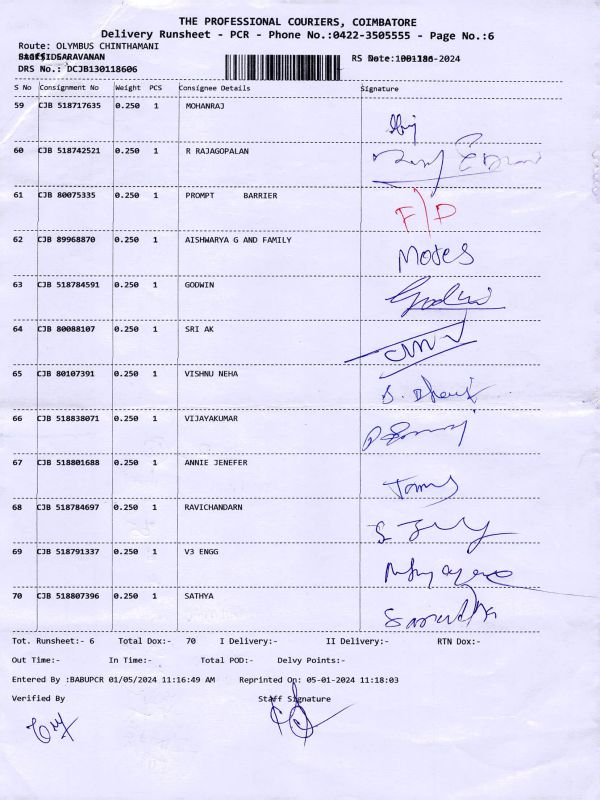 THE PROFESSIONAL COURIERS, COIMBATORE
Delivery Runsheet - PCR - Phone No.:0422-3505555 - Page No.:6
Route: OLYMBUS CHINTHAMANI
SARAVANAN
RS Date: -2024
DRS No.: DCJB130118606
S No Consignment No Weight PCS Consignee Details Signature
59 CJB 518717635 0.250 1 MOHANRAJ
60 CJB 518742521 0.250 1 R RAJAGOPALAN
61 CJB 80075335 0.250 1 PROMPT BARRIER F/D
62 CJB 89968870 0.250 1 AISHWARYA G AND FAMILY Moses
63 CJB 518784591 0.250 1 GODWIN Godwin
64 CJB 80088107 0.250 1 SRI AK
65 CJB 80107391 0.250 1 VISHNU NEHA
66 CJB 518838071 0.250 1 VIJAYAKUMAR
67 CJB 518801688 0.250 1 ANNIE JENEFER
68 CJB 518784697 0.250 1 RAVICHANDARN
69 CJB 518791337 0.250 1 V3 ENGG
70 CJB 518807396 0.250 1 SATHYA
Tot. Runsheet:- 6 Total Dox:- 70 I Delivery:- II Delivery:- RTN Dox:-
Out Time:- In Time:- Total POD:- Delvy Points:-
Entered By :BABUPCR 01/05/2024 11:16:49 AM Reprinted On: 05-01-2024 11:18:03
Verified By Staff Signature